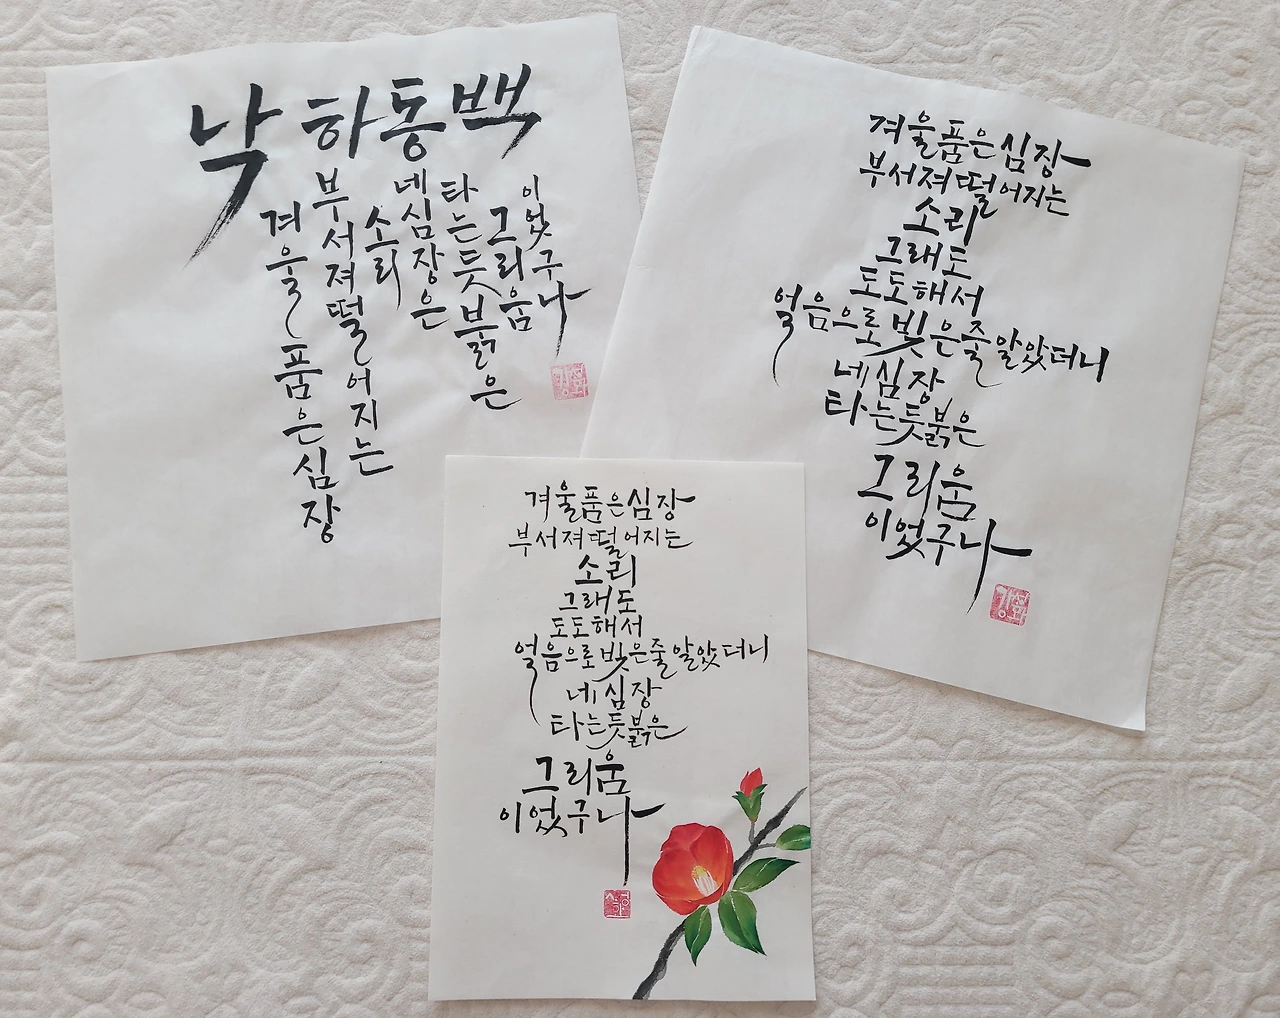 낙하동백
겨울품은심장
부서져떨어지는
소리
네심장은
타는듯붉은
그리움
이었구나
겨울품은심장
부서져떨어지는
소리
그래도
도도해서
얼음으로빚은줄알았더니
네심장
타는듯붉은
그리움
이었구나
겨울품은심장
부서져떨어지는
소리
그래도
도도해서
얼음으로빚은줄알았더니
네심장
타는듯붉은
그리움
이었구나